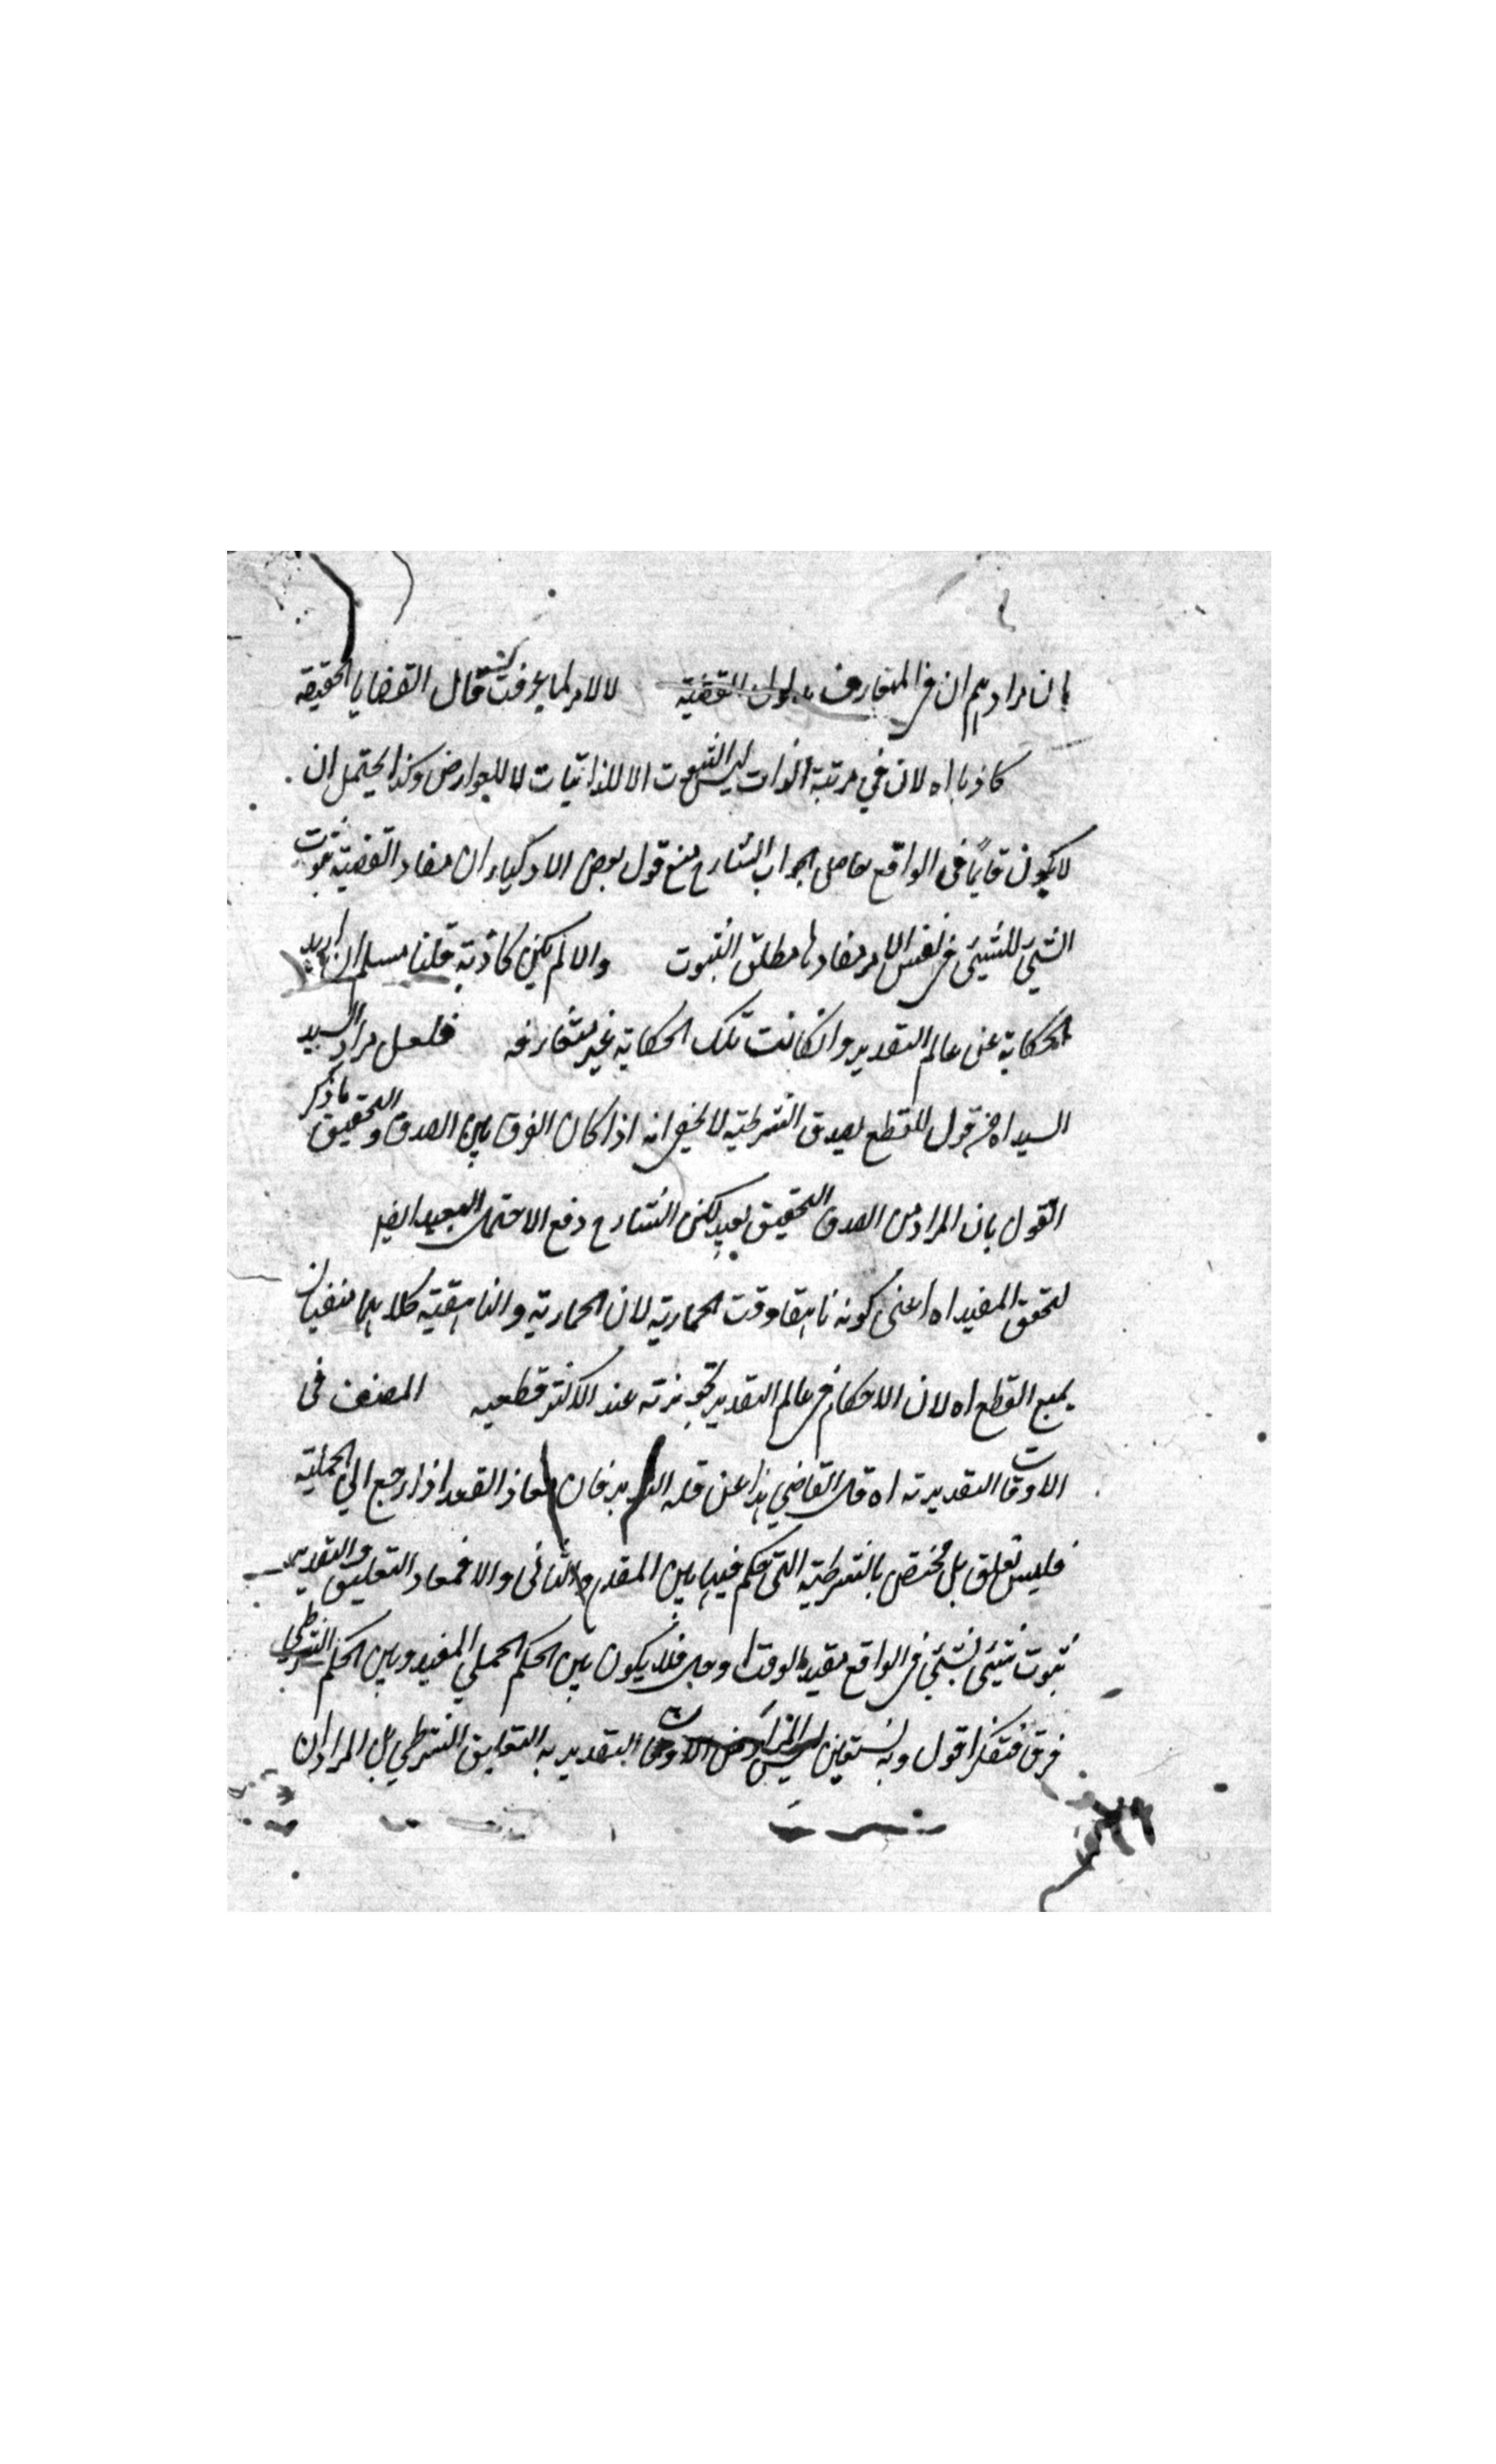 بان مرادهم ان في المتعارف مدلول القضية لا لامر لما عرفت قال القضايا الحقيقه
كاذبا اه لان في مرتبة الذات ليس الثبوت الا للذاتيات لا للعوارض وكذا يحتمل ان
لا يكون قايما في الواقع حاصل جواب الشارح منع قول بعض الاذكياء ان مفاد القضية ثبوت
الشيئ للشيئ في نفس الامر مفادها مطلق الثبوت والا لم يكن كاذبة قلنا مسلم ان اريد
الحكاية عن عالم التقدير وانكانت تلك الحكاية غير متعارفه فلعل مراد السيد
السيد اه قول للقطع بصدق الشرطية لا يخفى انه اذا كان الفرق بين الصدق والتحقيق ما ذكر
القول بان المراد من الصدق التحقيق بعيد لكن الشارح دفع الاحتمال البعيد ايضا
لتحقق المقيد اه اعنى كونه ناهقا وقت الحمارية لان الحمارية والناهقية كلاهما منفيان
يمنع القطع اه لان الاحكام في عالم التقدير تجويزية عند الاكثر قطعيه المصنف في
الاوقات التقديرية اه قال القاضي هذا عن قلة التدبر فان مفاد القعد اذا رجع الي الحملية
فليس تعلق بل مختص بالشرطية التى حكم فيها بين المقدم والتالى والا فمفاد التعليق والتقدير
ثبوت شيئى لشيئي في الواقع مقيد بالوقت او وجه فلا يكون بين الحكم الحملي المقيد وبين الحكم الشرطي
فرق فتفكر اقول وبه نستعين ليس المراد من الاوقات التقديرية التعليق الشرطي بل المراد ان